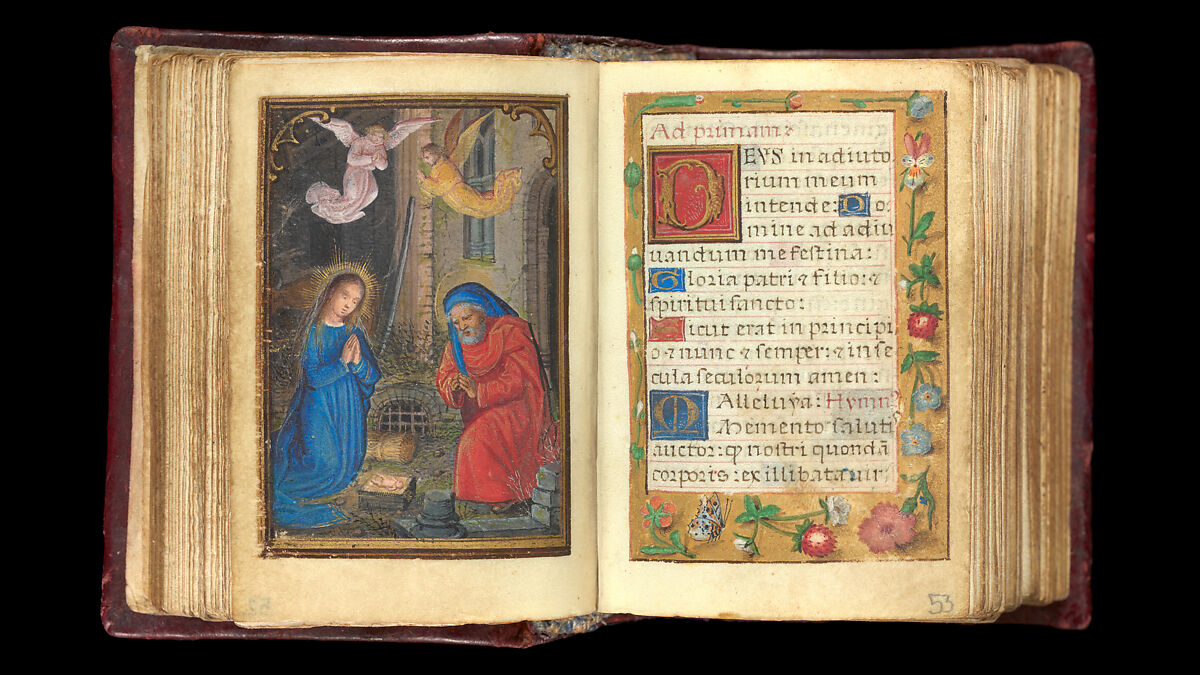 Ad primam
DEUS in adiuto
rium meum
intende: Do
mine ad adiu
uandum me festina:
Gloria patri & filio: &
spiritui sancto:
Sicut erat in principi
o & nunc & semper: & in se
cula seculorum amen:
Alleluya: Hymn
Memento saluti
auctor: qp nostri quondā
corporis: ex illibata uir
53